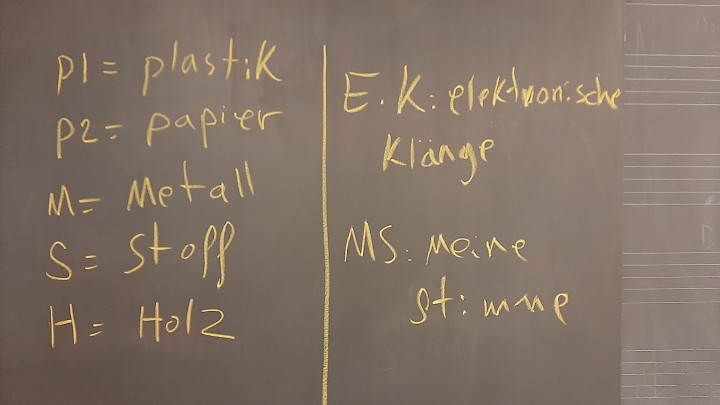 P1 = plastik
P2 = papier
M = Metall
S = Stoff
H = Holz
E.K: elektronische
Klänge
MS: Meine
Stimme